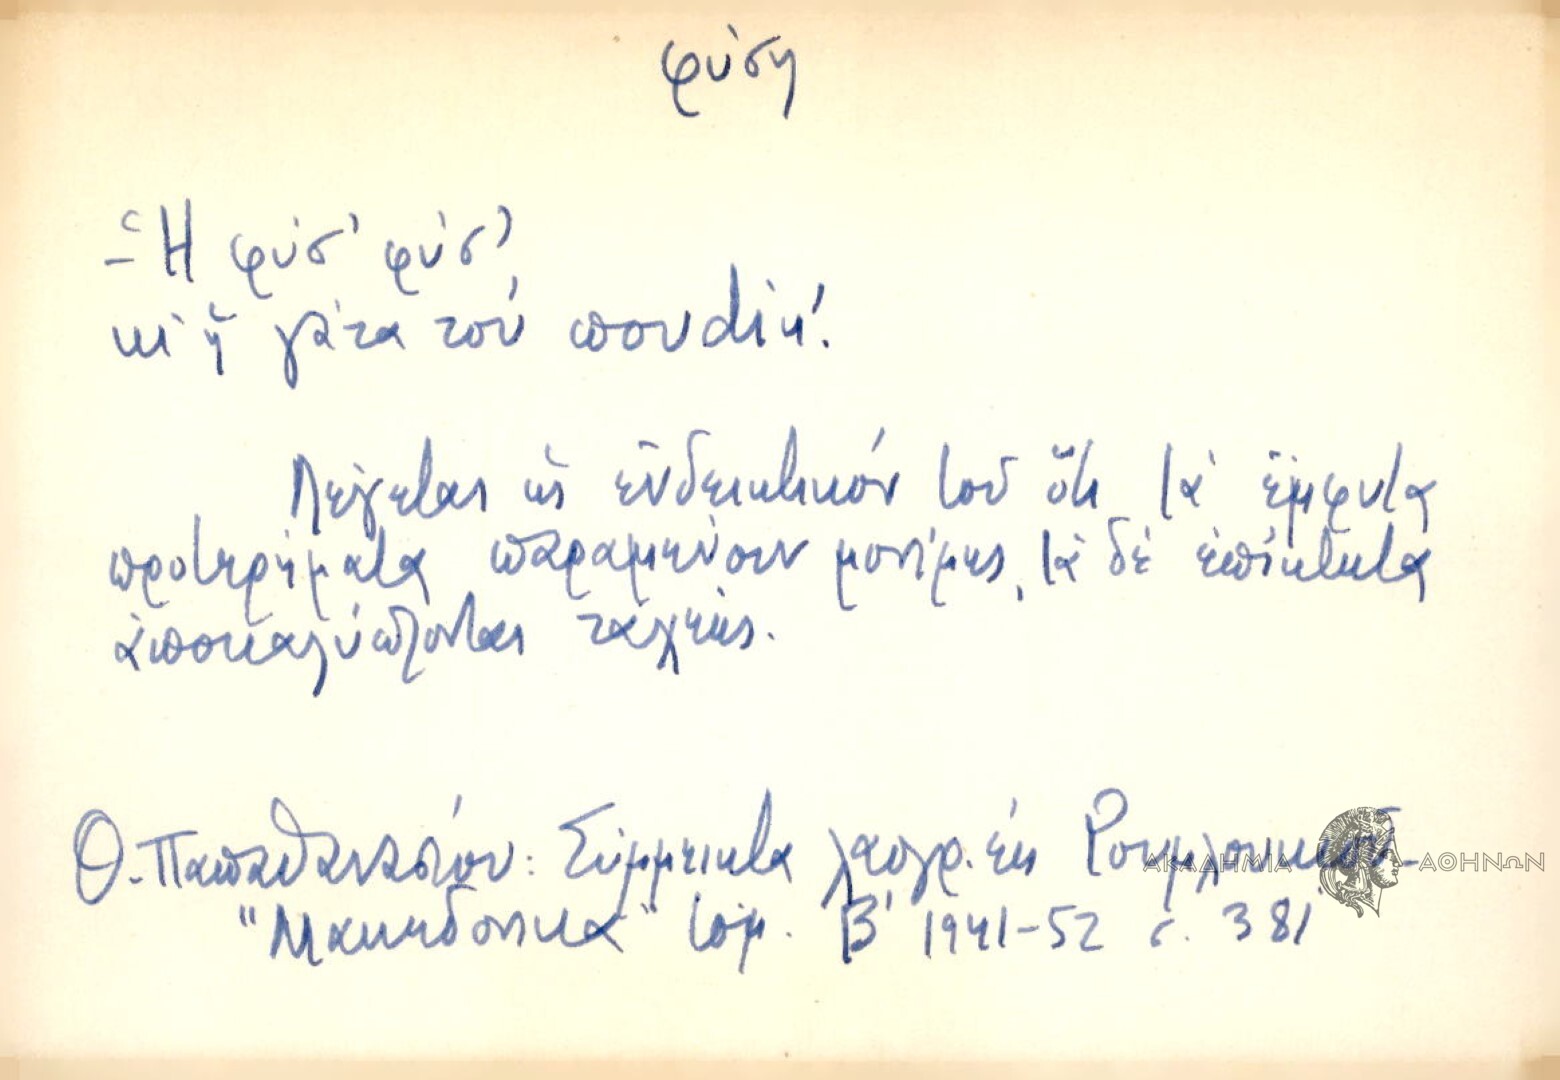 φύση
- Ἡ φύσ' φύσ'
κι ἡ γάτα τοὺ πουdίκ'.
Λέγεται ὡς ἐνδεικτικόν τοῦ ὅτι τὰ ἔμφυτα
προτερήματα παραμένουν μονίμως, τὰ δὲ ἐπίκτητα
ἀποκαλύπτονται ταχέως.
Θ. Παπαθανασίου: Σύμμεικτα λαογρ. ἐκ Ρουμλουκιοῦ-
"Μακεδονικὰ" τόμ. Β' 1941-52 σ. 381
ΑΚΑΔΗΜΙΑ ΑΘΗΝΩΝ